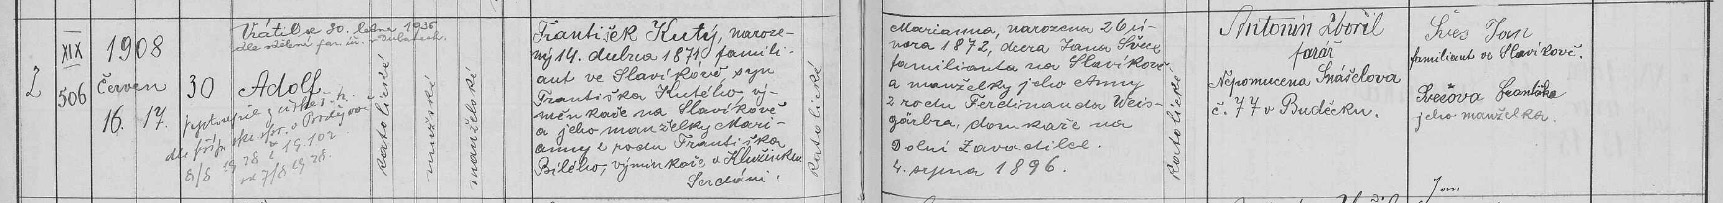 2
XIX
506
1908
červen
16. 17.
Vrátil se 30. ledna 1936
dle sdělení far. úř.
30 Adolf
vystoupil z církve ř. k.
dle příp.
katolické
mužské
manželské
František Kutý, naroze-
ný 14. dubna 1871, famili-
ant ve Slavíkově syn
Františka Kutého, vý-
měnkaře na Slavíkově
a jeho manželky Mari-
anny z rodu Františka
Bílého, výminkaře v Klužínku
Sezdáni:
katolické
Marianna, narozena 26 ú-
nora 1872, dcera Jana Švece
familianta na Slavíkově
a manželky jeho Anny
z rodu Ferdinanda Weis-
gärbra, domkaře na
Dolní Zavadilce.
4. srpna 1896.
katolické
Antonín Zbořil
farář
Nepomucena Snášelova
č. 77 v Buděcku.
Švec Jan
familiant ve Slavíkově.
Švecova Františka
jeho manželka.
Jan